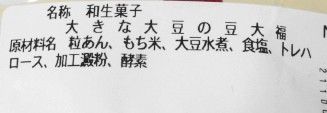 名称　和生菓子
大きな大豆の豆大福
原材料名　粒あん、もち米、大豆水煮、食塩、トレハ
ロース、加工澱粉、酵素